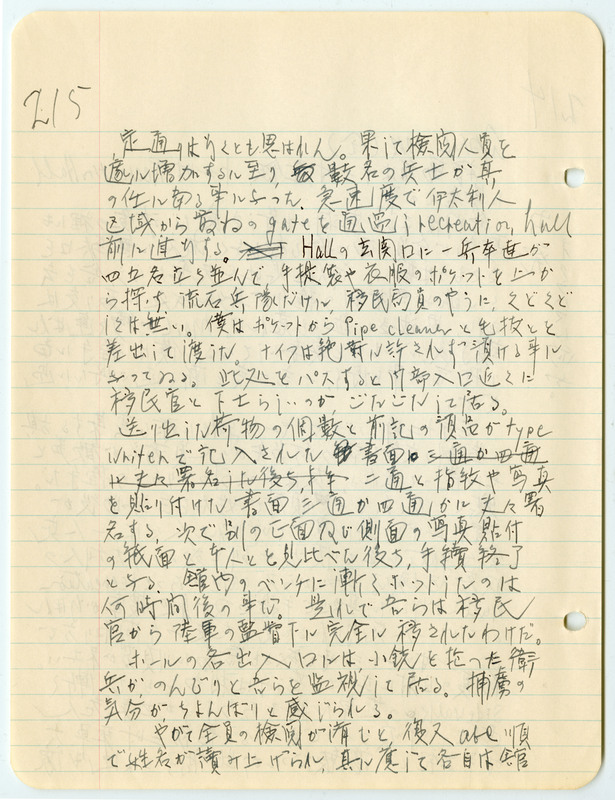 215
定通りは行くとも思はれん。果して検閲人員を
遽に増加するに至り、数名の兵士が其
の任にある事になった。急速度で伊太利人
区域から重ねのgateを通過しrecreation hall
前に進行する。Hallの玄関口に一兵卒達が
四五名立ち並んで、手提袋や衣服のポケットを上か
ら探す。流石兵隊だけに、移民局員のやうに、くどくど
しくは無い。僕はポケットからPipe cleanerと毛抜とを
差出して渡した。ナイフは絶対に許されず預ける事に
なってゐる。此処をパスすると内部入口近くに
移民官と下士らしいのが、ごたごたして居る。
送り出した荷物の個数と前記の預品がtype
writerで記入された書面に三通か四通
に夫々署名した後ち、二通と指紋や写真
を貼り付けた書面三通か四通かに夫々署
名する。次で別の正面及び側面の写真貼付
の紙面と本人とを見比べた後ち、手続終了
となる。館内のベンチに漸くホットしたのは
何時間後の事だ。是れで吾らは移民
官から陸軍の監督下に完全に移されたわけだ。
ホールの各出入口には、小銃を抱った衛
兵が、のんびりと吾らを監視して居る。捕虜の
気分が、ちょんぼりと感じられる。
やがて全員の検閲が済むと、復又abc順
で姓名が読み上げられ、其に応じて各自は館